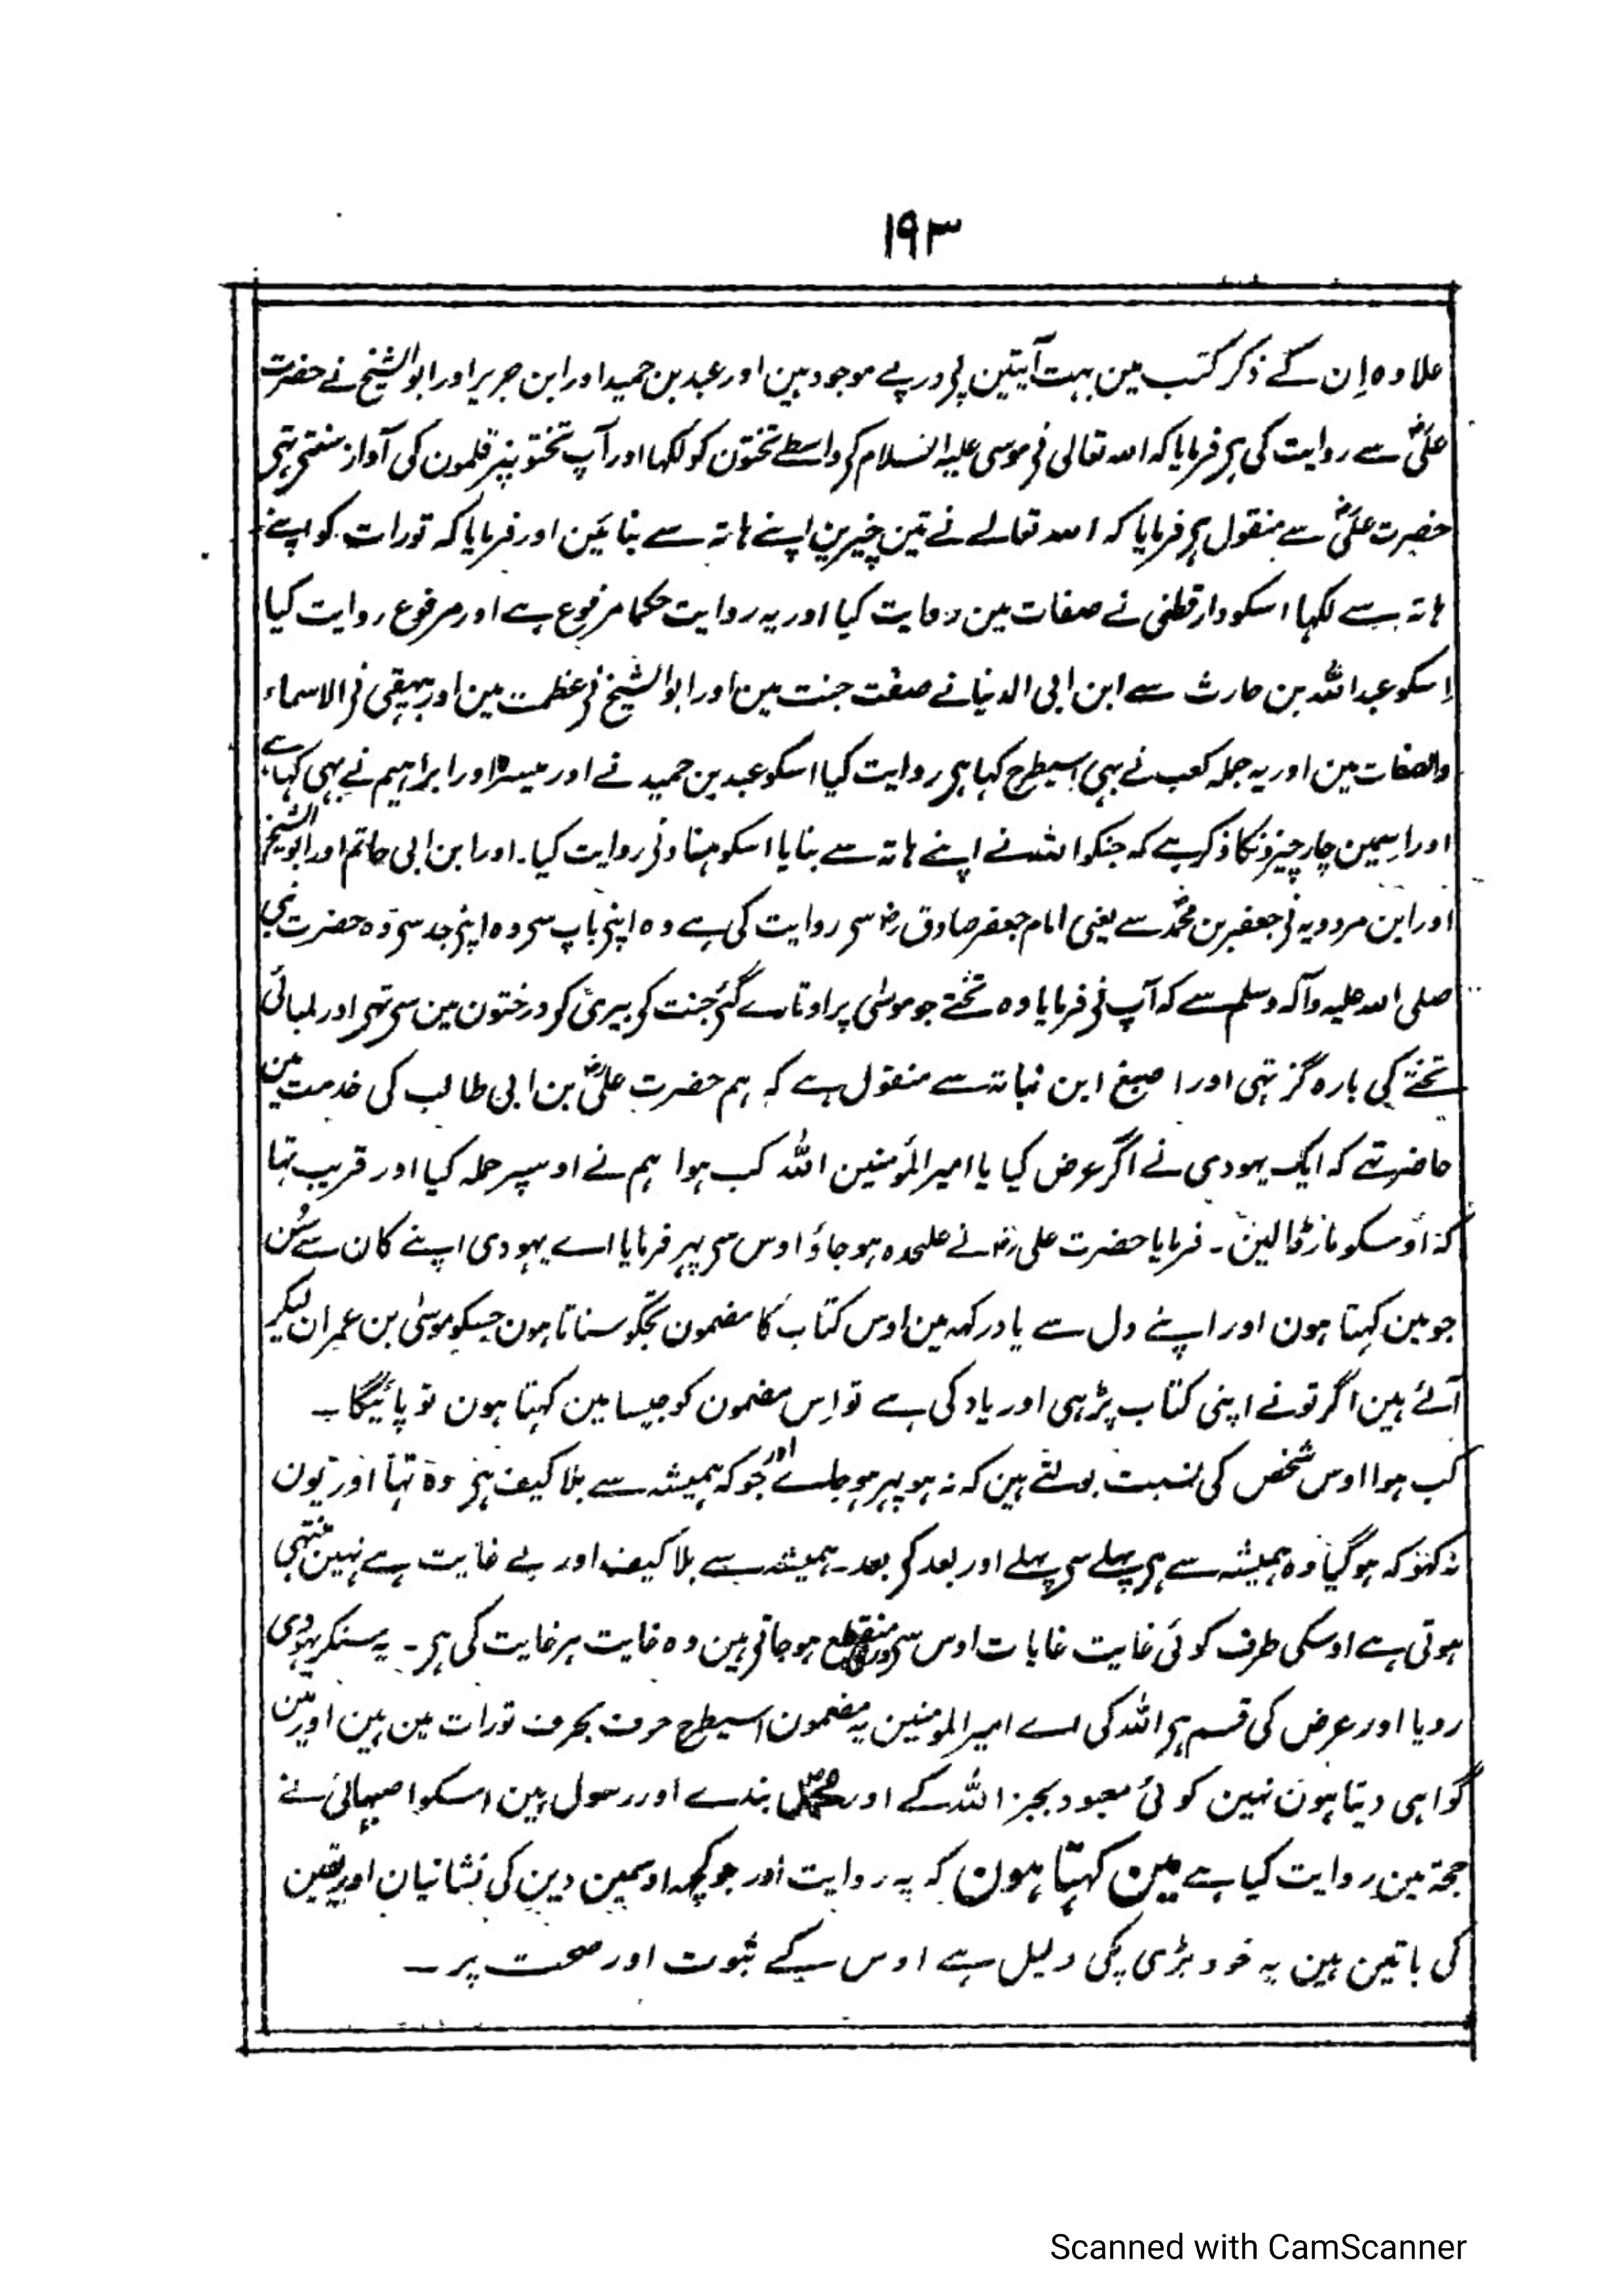 ۱۹۳
علاوہ اِن کے ذکر کتب مین بہت آیتین پی درپے موجود ہین اور عبد بن حمید اور ابن جریر اور ابوالشیخ نے حضرت
علیؓ سے روایت کی ہی فرمایا کہ اللہ تعالی نی موسی علیہ السلام کی واسطے تختون کو لکہا اور آپ تختونپر قلمون کی آواز سنتی تہی
حضرت علیؓ سے منقول ہی فرمایا کہ اللہ تعالے نے تین چیزین اپنے ہاتہ سے بنائین اور فرمایا کہ تورات کو اپنے
ہاتہ سے لکہا اسکو دارقطنی نے صفات مین روایت کیا اور یہ روایت حکما مرفوع ہے اور مرفوع روایت کیا
اِسکو عبد اللہ بن حارث سے ابن ابی الدنیا نے صفت جنت مین اور ابوالشیخ نی عظمت مین اور بیہقی نی الاسماء
والصفات مین اور یہ جملہ کعب نے بہی اسیطرح کہا ہی روایت کیا اسکو عبد بن حمید نے اور میسرہ اور ابراہیم نے بہی کہا ہے
اور اسمین چار چیزونکا ذکر ہے کہ جنکو اللہ نے اپنے ہاتہ سے بنایا اسکو ہناد نی روایت کیا۔ اور ابن ابی حاتم اور ابوالشیخ
اور ابن مردویہ نی جعفر بن محمدؓ سے یعنی امام جعفر صادق رضہ سی روایت کی ہے وہ اپنی باپ سی وہ اپنی جد سی وہ حضرت نبی
صلی اللہ علیہ وآلہ وسلم سے کہ آپ نی فرمایا وہ تختے جو موسیٰ پر اوتارے گئی جنت کی بیری کی درختون مین سی تہی اور لمبائی
تختے کی بارہ گز تہی اور اصبغ ابن نباتہ سے منقول ہے کہ ہم حضرت علیؓ بن ابی طالب کی خدمت مین
حاضر تہے کہ ایک یہودی نے آکر عرض کیا یا امیر المؤمنین اللہ کب ہوا ہم نے اوسپر حملہ کیا اور قریب تہا
کہ اوسکو مارڈالین۔ فرمایا حضرت علی رضہ نے علحدہ ہوجاؤ اوس سی پہر فرمایا اے یہودی اپنے کان سے سُن
جو مین کہتا ہون اور اپنے دل سے یاد رکہہ مین اوس کتاب کا مضمون تجکو سناتا ہون جسکو موسیٰ بن عمران لیکر
آئے ہین اگر تونے اپنی کتاب پڑہی اور یاد کی ہے تو اِس مضمون کو جیسا مین کہتا ہون تو پائیگا۔
کب ہوا اوس شخص کی نسبت بولتے ہین کہ نہ ہو پہر ہوجاے اور جو کہ ہمیشہ سے بلا کیف ہی وہ تہا اور یون
نہ کہو کہ ہوگیا وہ ہمیشہ سے ہی پہلے سی پہلے اور بعد کی بعد۔ ہمیشہ سے بلا کیف اور بے غایت ہے نہین منتہی
ہوتی ہے اوسکی طرف کوئی غایت غایات اوس سی منقطع ہوجاتی ہین وہ غایت ہر غایت کی ہی۔ یہ سنکر یہودی
رویا اور عرض کی قسم ہی اللہ کی اے امیر المومنین یہ مضمون اسیطرح حرف بحرف تورات مین ہین اور مین
گواہی دیتا ہون نہین کوئی معبود بجز اللہ کے اور محمدؐ بندے اور رسول ہین اسکو اصبہانی نے
حجۃ مین روایت کیا ہے مین کہتا ہون کہ یہ روایت اور جو کچہہ اوسمین دین کی نشانیان اور یقین
کی باتین ہین یہ خود بڑی پکی دلیل ہے اوس کے ثبوت اور صحت پر۔
Scanned with CamScanner